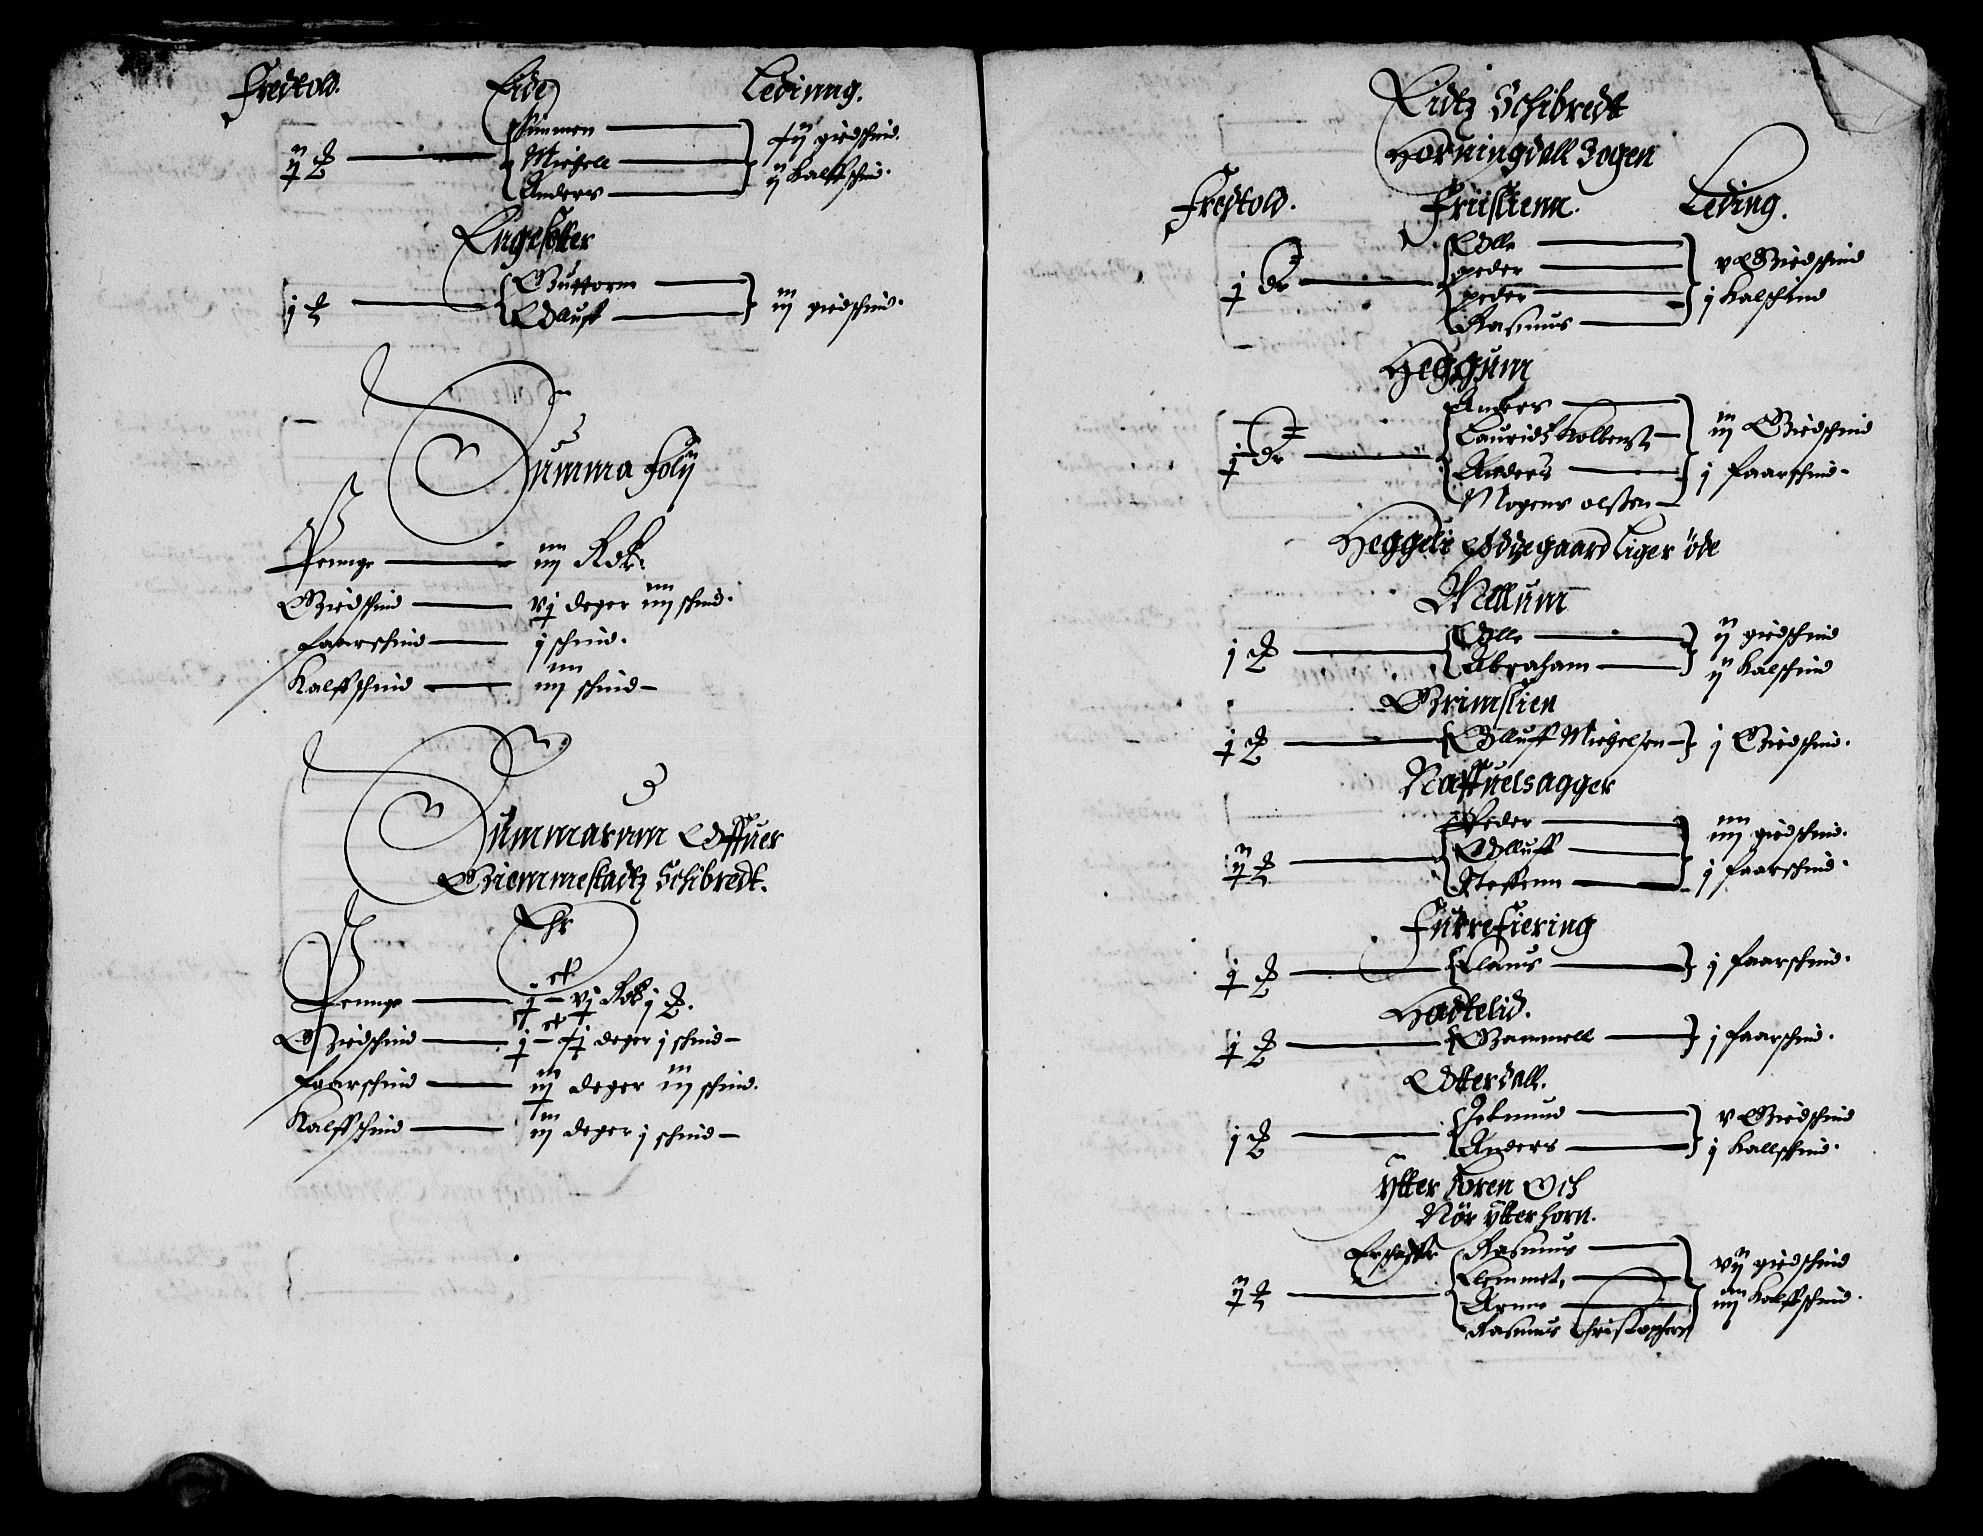 Fredtold. Eide Leding.
Simmen
Michell
Anders
giedschind.
ij Kalffschind.
Engesetter
Guttorm
Olluff
iij giedschind.
Summa Folij
Pennge iiij Rdr.
Giedschind vj deger iiij schind.
faarschind j schind.
Kalffschind iiij schind
Summarum Offuer
Giemmestadtz Schibredt.
Ehr
Pennge
Giedschind deger j schind
faarschind iij deger iij schind.
Kalffschind iij deger j schind
Eidtz Schibredt
Horningdall Sogen
Fredtold. Friislienn. Leding.
j dr Olle
peder
peder
Rasmus
v Giedschind
j Kalschind
Heggum
j dr Anders
Lauridtz Kolbenst
Anders
Mogens olssen
iij Giedschind
j faarschind
Heggelie Ødegaard liger øde
Mellum
Olle
Abraham
ij giedschind
ij Kalschind
Grimslien
Olluff Michelsen j Giedschind.
Naffuelsagger
Peder
Olluff
Steffenn
iiij giedschind.
j faarschind
Furrefiering
Claus j faarschind.
Hadtelid.
Gammell j faarschind.
Otterdall.
Jetmund
Anders
v Giedschind
j Kallschind.
ytter horen Och
Nør ytterhorn.
Rasmus
Clemmet
Arne
Rasmus Christophers
vij giedschind
iiij Kalffschind.